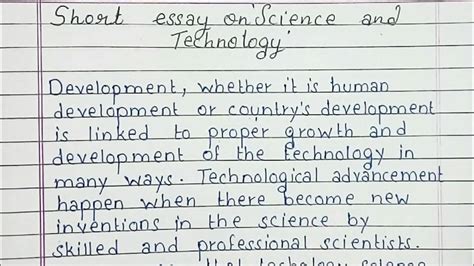 Short essay on 'Science and
Technology'
Development, whether it is human
development or country's development
is linked to proper growth and
development of the technology in
many ways. Technological advancement
happen when there become new
inventions in the science by
skilled and professional scientists.